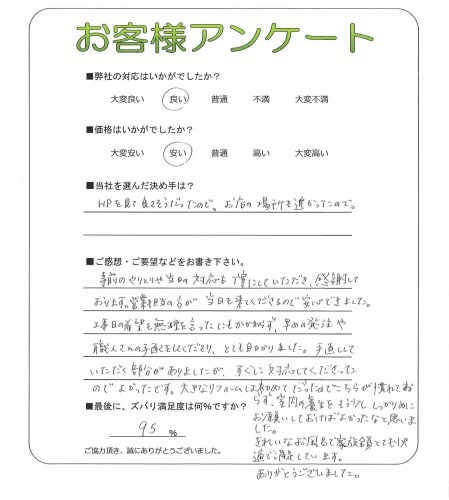 お客様アンケート
■弊社の対応はいかがでしたか？
大変良い 良い 普通 不満 大変不満
■価格はいかがでしたか？
大変安い 安い 普通 高い 大変高い
■当社を選んだ決め手は？
HPを見て良さそうだったので。お店の場所も近かったので。
■ご感想・ご要望などをお書き下さい。
事前のやりとりや当日の対応も丁寧にしていただき、感謝して
おります。営業担当の方が当日も来てくださるので安心できました。
工事日の希望も無理を言ったにもかかわらず、早めの発注や
職人さんの手配をしてくださり、とても助かりました。手直しして
いただく部分がありましたが、すぐに対応してくださった
のでよかったです。大きなリフォームは初めてだったのでこちらが慣れてお
らず、室内の養生をもう少ししっかりめに
お願いしておけばよかったなと思いま
した。
きれいなお風呂で家族全員とても快
適で満足しています。
ありがとうございました。
■最後に、ズバリ満足度は何％ですか？
95 %
ご協力頂き、誠にありがとうございました。